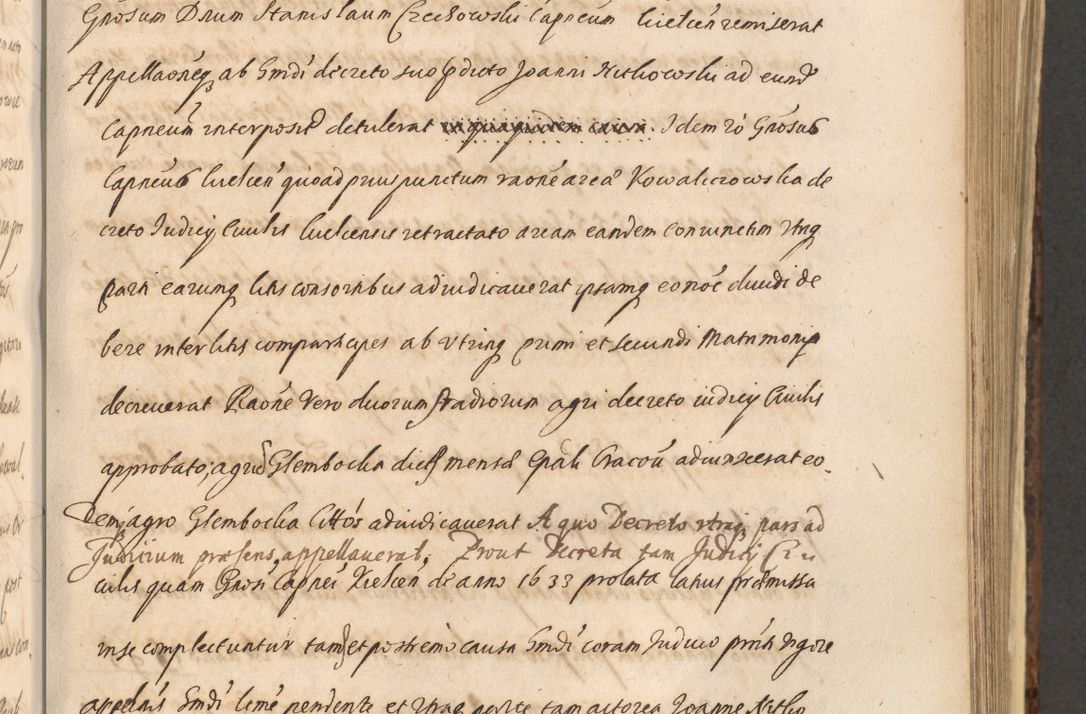 Gnosum Dnum Stanislaum Czechowski Capneum Kielcen remiserat
Appellaoneq ab Gmdi decreto suo pdicto Joanni Nitkowski ad eund
Capneum interposit detulerat in qua quidem causa. Idem io Gnosus
Capneus Kielcen quoad prius punctum raone areae Kowaliczowska de
creto Judicij Ciuilis Kielcensis retractato aream eandem coniunctim vtriq
parti earumq litis consortibus adiudicauerat ipsamq eo noe diuidi de
bere inter litis comparticipes ab vtrinq primi et secundi Matrimonij
decreuerat Raone vero duorum stadiorum agri decreto iudicij Ciuilis
approbato, agru Glembocka dict mensae Epali Cracou adiunxerat eo
demq agro Glembocka Cittos adiudicauerat A quo Decreto vtraq pars ad
Judicium praesens appellauerat, Prout Decreta tam Judicij Ciu
iuilis quam Gnosi Capnei Kielcen de anno 1633 prolata latius praemissa
in se complectuntur tand et postremo causa Gmdi coram Judicio pnti vigore
appellnis Gmdi leme pendente et vtraq parte tam actorea Joanne Nitko